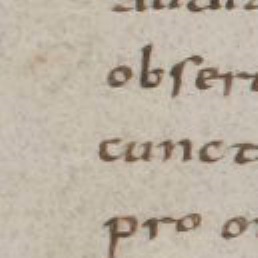 obser
cunct
pro o